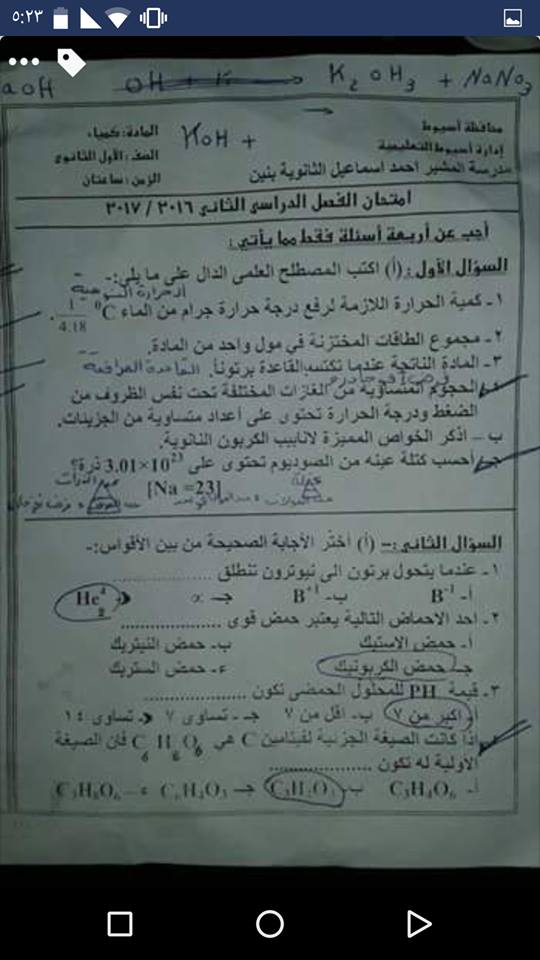 ٥:٢٣
aOH OH + K → K2OH3 + NaNO3
KOH + →
محافظة أسيوط
إدارة أسيوط التعليمية
مدرسة المشير احمد اسماعيل الثانوية بنين
المادة: كيمياء
الصف: الأول الثانوى
الزمن: ساعتان
امتحان الفصل الدراسى الثانى ٢٠١٦ / ٢٠١٧
أجب عن أربعة أسئلة فقط مما يأتي:
السؤال الأول: (أ) اكتب المصطلح العلمى الدال على ما يلى:-
الحرارة النوعية
١- كمية الحرارة اللازمة لرفع درجة حرارة جرام من الماء 1/4.18 °C.
٢- مجموع الطاقات المختزنة في مول واحد من المادة.
٣- المادة الناتجة عندما تكتسب القاعدة برتوناً.
٤- الحجوم المتساوية من الغازات المختلفة تحت نفس الظروف من
الضغط ودرجة الحرارة تحتوى على أعداد متساوية من الجزيئات.
ب – اذكر الخواص المميزة لانابيب الكربون النانوية.
جـ- أحسب كتلة عينه من الصوديوم تحتوى على 3.01×10²³ ذرة؟
[Na =23]
السؤال الثانى:- (أ) أختر الأجابة الصحيحة من بين الأقواس:-
١- عندما يتحول برتون الى نيوترون تنطلق ....................
أ- B⁻¹ ب- B⁺¹ جـ- ∝ He⁴₂
٢- احد الاحماض التالية يعتبر حمض قوى ....................
أ- حمض الاستيك ب- حمض النيتريك
جـ- حمض الكربونيك ء- حمض الستريك
٣- قيمة PH للمحلول الحمضى تكون ....................
أ- اكبر من ٧ ب- اقل من ٧ جـ- تساوى ٧ تساوى ١٤
٤- إذا كانت الصيغة الجزيئية لفيتامين C هي C₆H₈O₆ فان الصيغة
الأولية له تكون ....................
أ- C₃H₄O₆ ب-